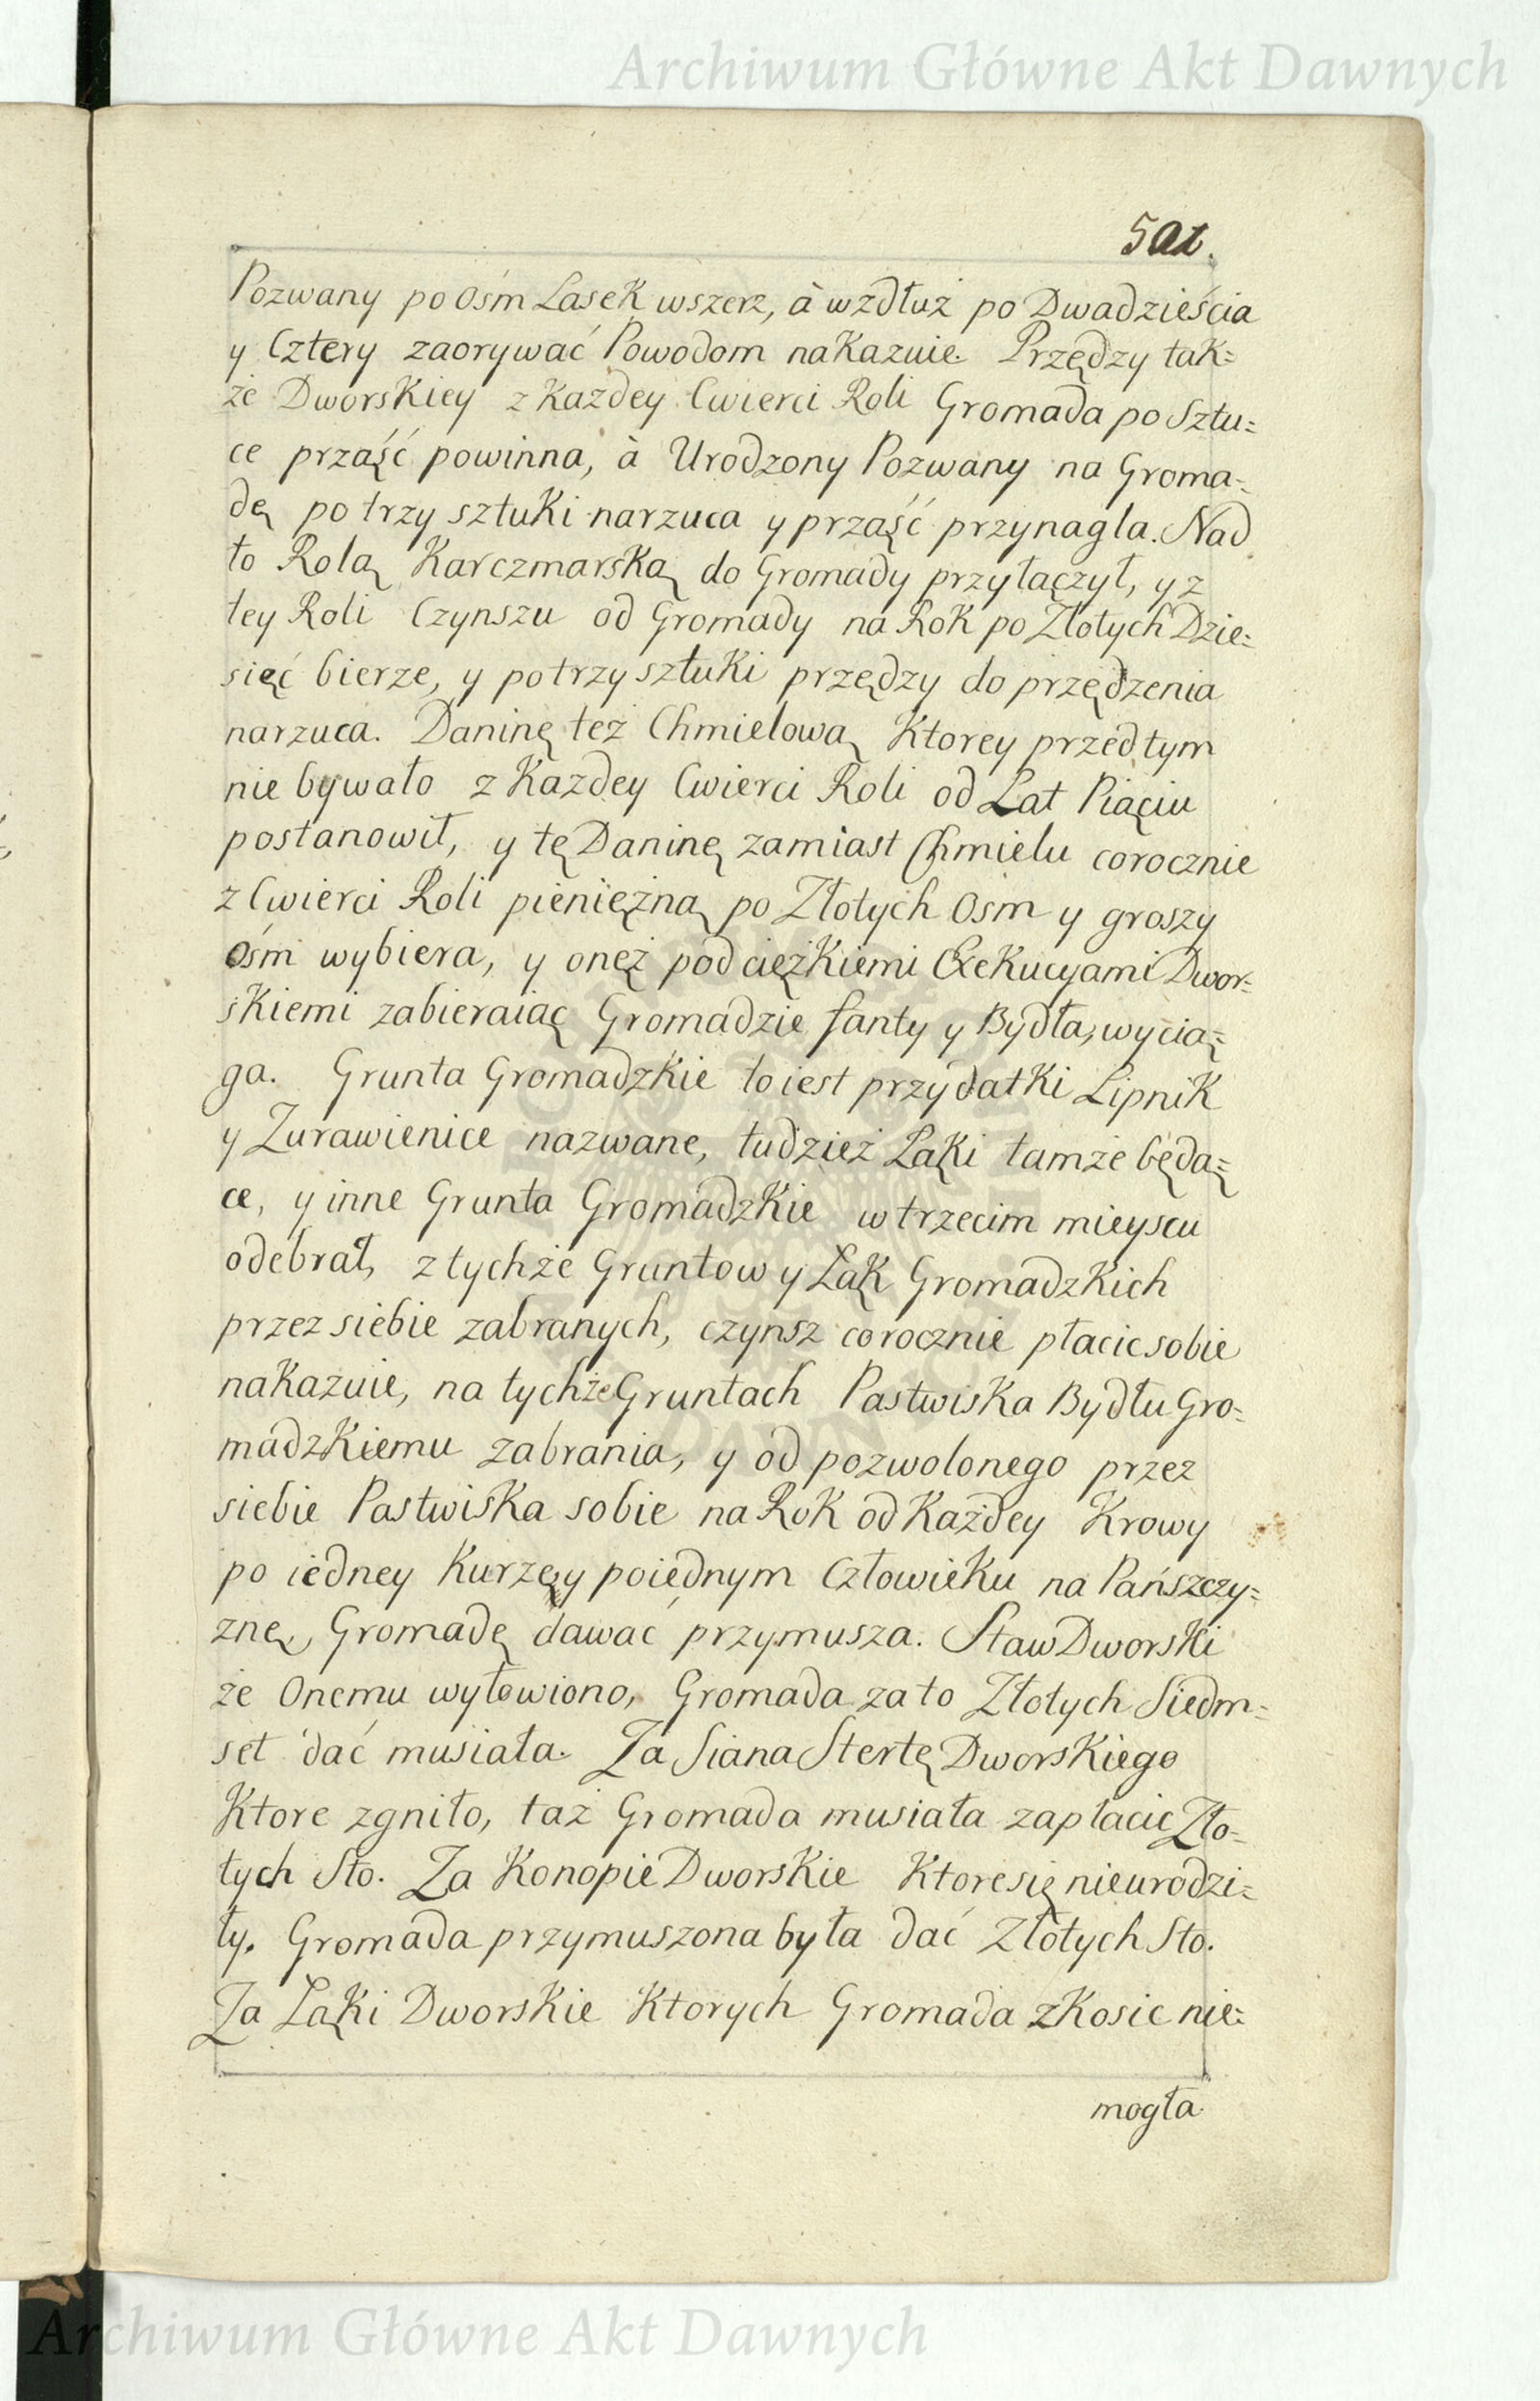 Archiwum Główne Akt Dawnych
501.
Pozwany po ośm Lasek wszerz, à wzdłuż po Dwadzieścia
y Cztery zaorywać Powodom nakazuie. Przędzy tak=
że Dworskiey z każdey Cwierci Roli Gromada po Sztu=
ce prząść powinna, à Urodzony Pozwany na Groma=
dę po trzy sztuki narzuca y prząść przynagla. Nad
to Rolą Karczmarską do Gromady przyłączył, y z
tey Roli Czynszu od Gromady na Rok po Złotych Dzie=
sięć bierze, y po trzy sztuki przędzy do przędzenia
narzuca. Daninę też Chmielową Ktorey przedtym
nie bywało z Każdey Cwierci Roli od Lat Piąciu
postanowił, y tę Daninę zamiast Chmielu corocznie
z Cwierci Roli pieniężną po Złotych Osm y groszy
Ośm wybiera, y onęż pod cięzkiemi Exekucyami Dwor=
skiemi zabieraiąc Gromadzie fanty y Bydła, wycią=
ga. Grunta Gromadzkie to iest przydatki Lipnik
y Zurawienice nazwane, tudzież Łąki tamże będą=
ce, y inne Grunta Gromadzkie w trzecim mieyscu
odebrał, z tychże Gruntow y Łąk Gromadzkich
przez siebie zabranych, czynsz corocznie płacic sobie
nakazuie, na tychże Gruntach Pastwiska Bydłu Gro=
madzkiemu zabrania, y od pozwolonego przez
siebie Pastwiska sobie na Rok od Każdey Krowy
po iedney Kurzę y po iednym Człowieku na Pańszczy=
znę, Gromadę dawac przymusza. Staw Dworski
że Onemu wyłowiono, Gromada za to Złotych Siedm=
set dać musiała. Za Siana Stertę Dworskiego
Ktore zgniło, taż Gromada musiała zapłacic Zło=
tych Sto. Za Konopie Dworskie Ktore się nieurodzi=
ły. Gromada przymuszona była dać Złotych Sto.
Za Łąki Dworskie Ktorych Gromada zkosic nie=
mogła
Archiwum Główne Akt Dawnych